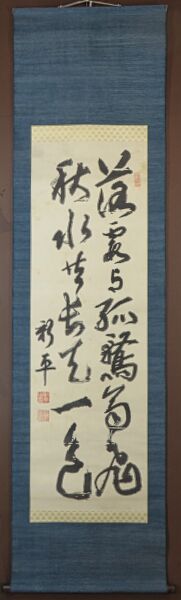 落霞与孤鶩斉飛
秋水共長天一色